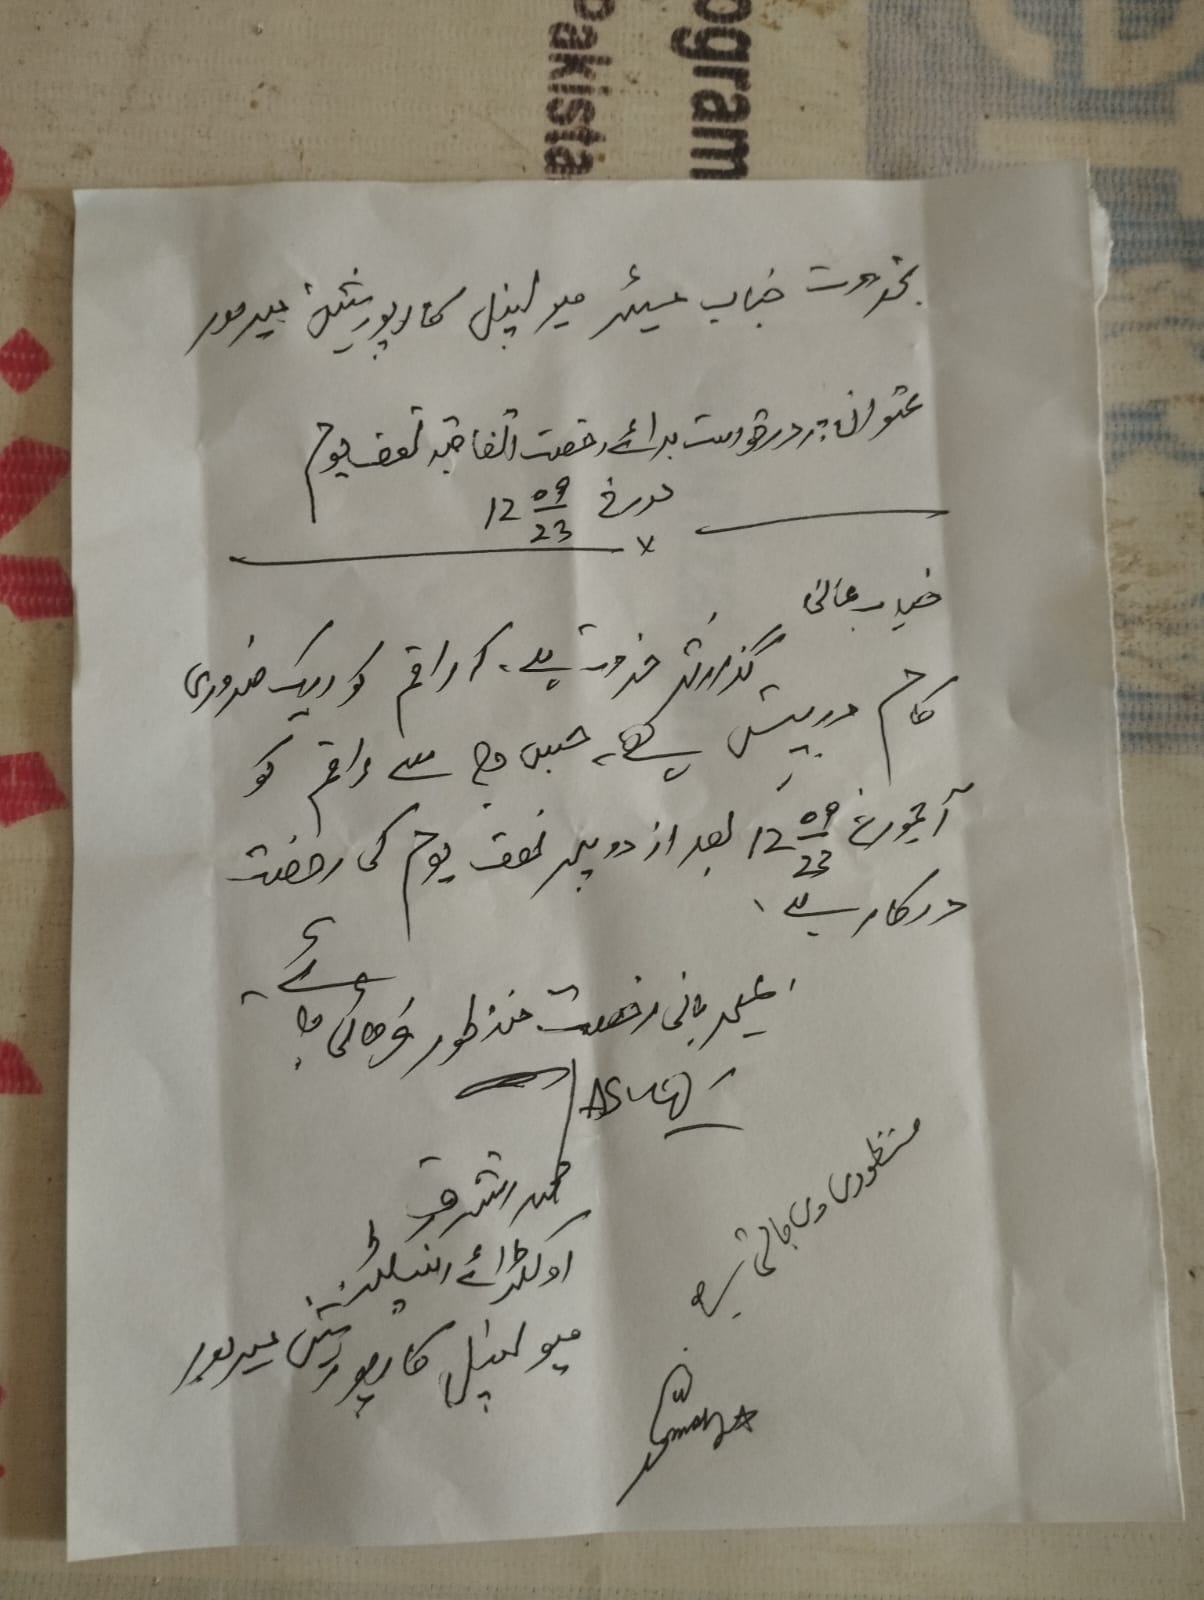 ogram
Pakista
بخدمت جناب میئر میونسپل کارپوریشن میرپور
عنوان:۔ درخواست برائے رخصت اتفاقیہ نصف یوم
مورخہ 12 09/23
x
جناب عالی
گذارش خدمت ہے۔ کہ راقم کو ایک ضروری
کام درپیش ہے۔ جس وجہ سے راقم کو
آجمورخہ 12 09/23 بعد از دوپہر نصف یوم کی رخصت
درکار ہے۔
بمہربانی رخصت منظور فرمائی جائے۔
محمد اشرف
میونسپل کارپوریشن میرپور
منظوری دی جاتی ہے